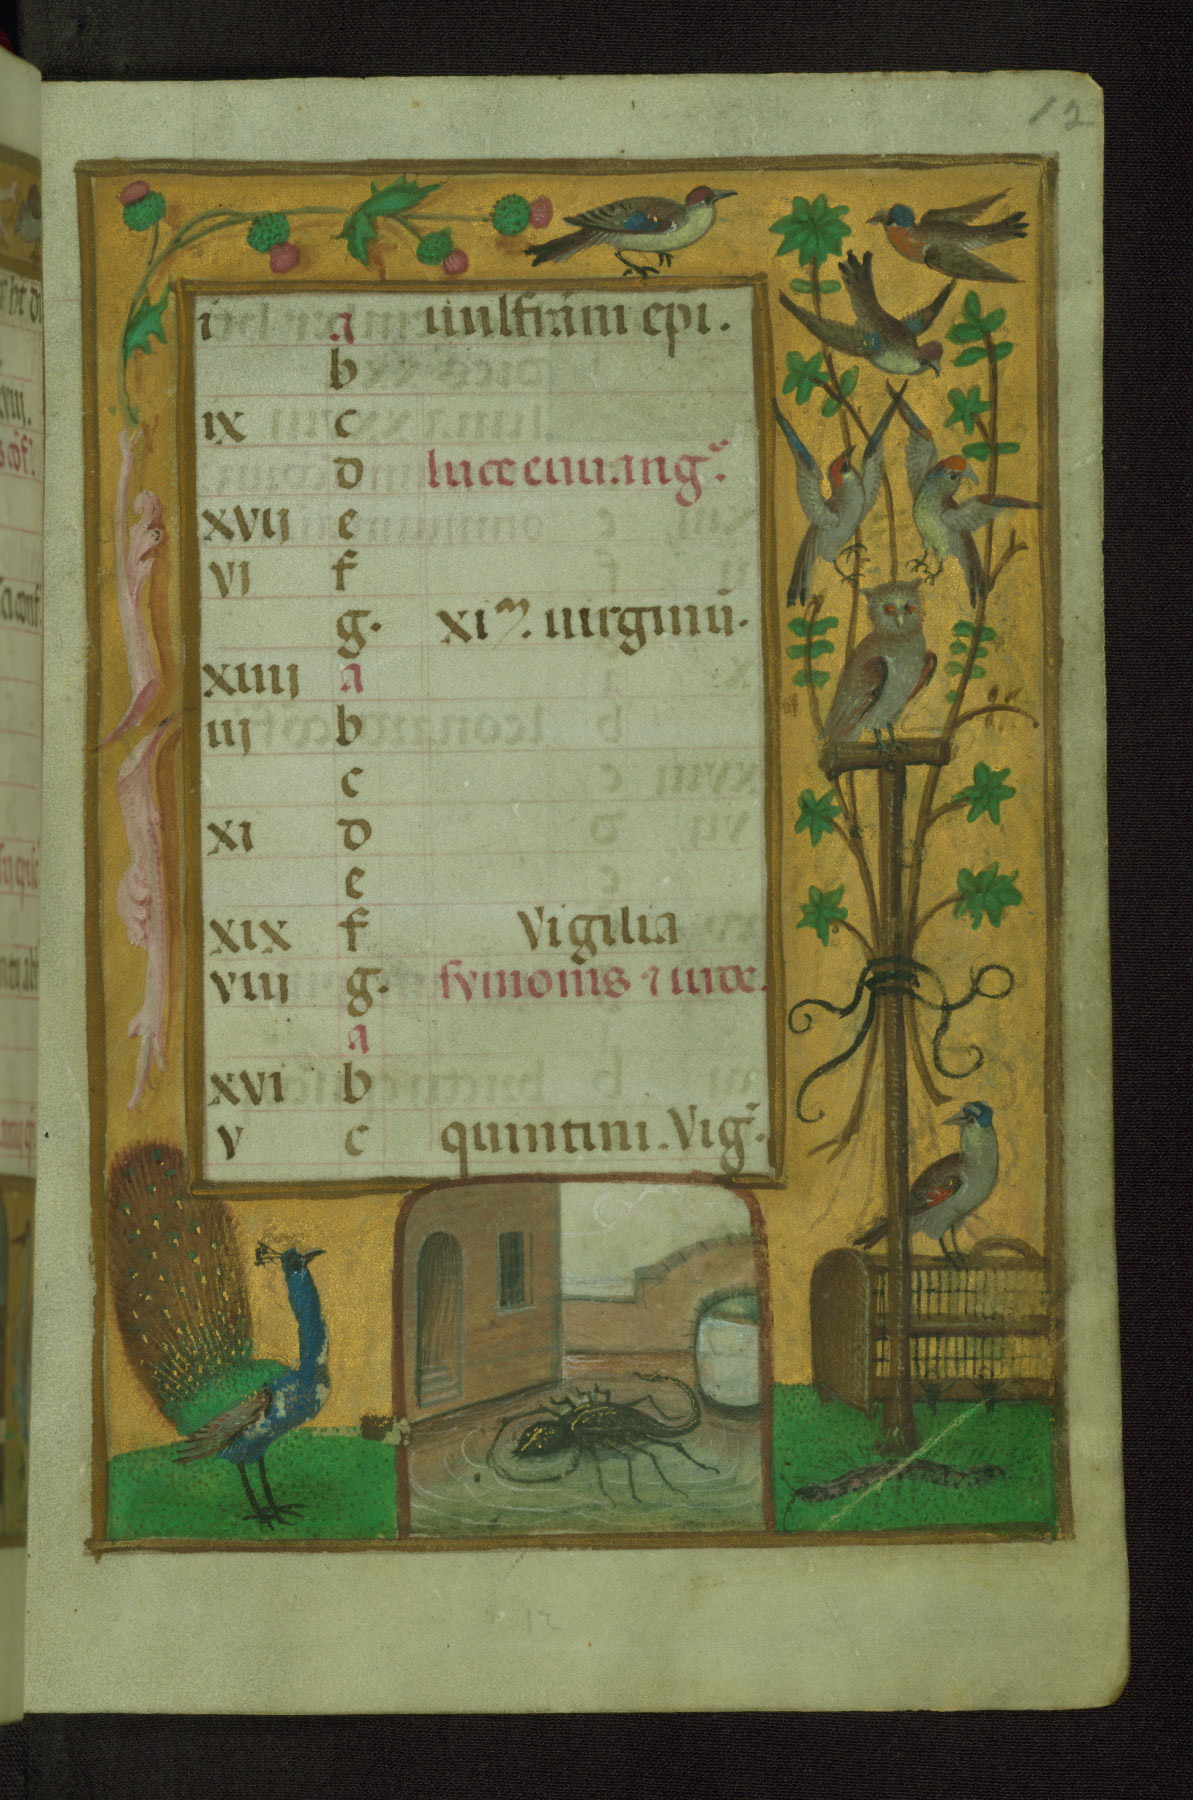 12
i a uulfrāni epi.
b
ix c
d luce euuang.
xvij e
vj f
g. xi m. uirginū.
xiiij a
iij b
c
xi d
e
xix f Vigilia
viij g. symonis ⁊ iude.
a
xvi b
v c quintini. Vig.
12